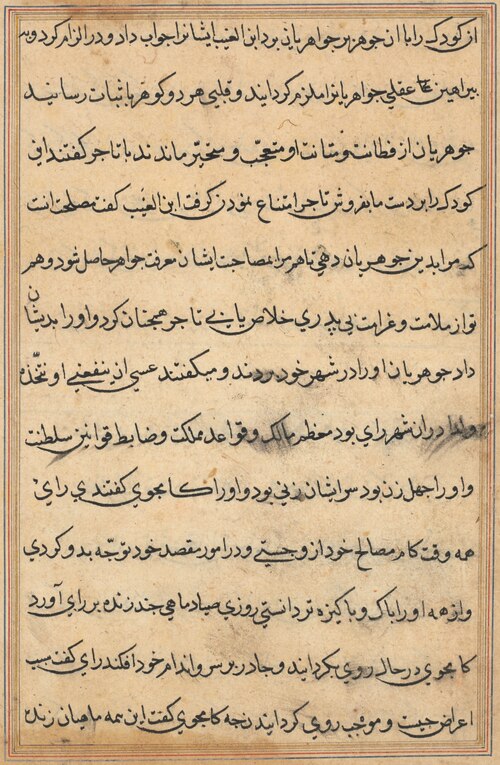 از کودک را با ان جوهر بر جواهریانی بود ابن الغیب ایشانرا جواب داد و در الزام کرد و به
براهین عقلی جواهریانرا ملزم کردایند و قلبی هر دو کوهر باثبات رسانید
جوهریان از فطانت و متانت او متعجب و متحیر ماندند با تاجر کفتند این
کودک را بر دست ما بفروش تاجر امتناع نمودن کرفت ابن الغیب کفت مصلحت انست
که مرا بدین جوهریان دهی تا هم مرا بمصاحبت ایشان معرفت جواهر حاصل شود و هم
تو از ملامت و غرامت بی پدری خلاص یابی تاجر همچنان کرد و او را بدیشان
داد جوهریان او را در شهر خود بردند و میکفتند عسی ان ینفعنی او نتخذه
ولدا در ان شهر رای بود معظم ممالک و قواعد مملکت و ضابط قوانین سلطنت
و او را چهل زن بود سر ایشان زنی بود و او را کامجوی کفتندی رای
همه وقت کام مصالح خود ازو جستی و در امور مقصد خود توجه بدو کردی
و از همه او را پاک و پاکیزه تر دانستی روزی صیاد ماهی چند زنده بر رای آورد
کامجوی در حال روی بکردایند و چادر بر سر و اندام خود افکند رای کفت سبب
اعراض چیست و موجب روی کردایند نچه کامجوی کفت این همه ماهیان زنده